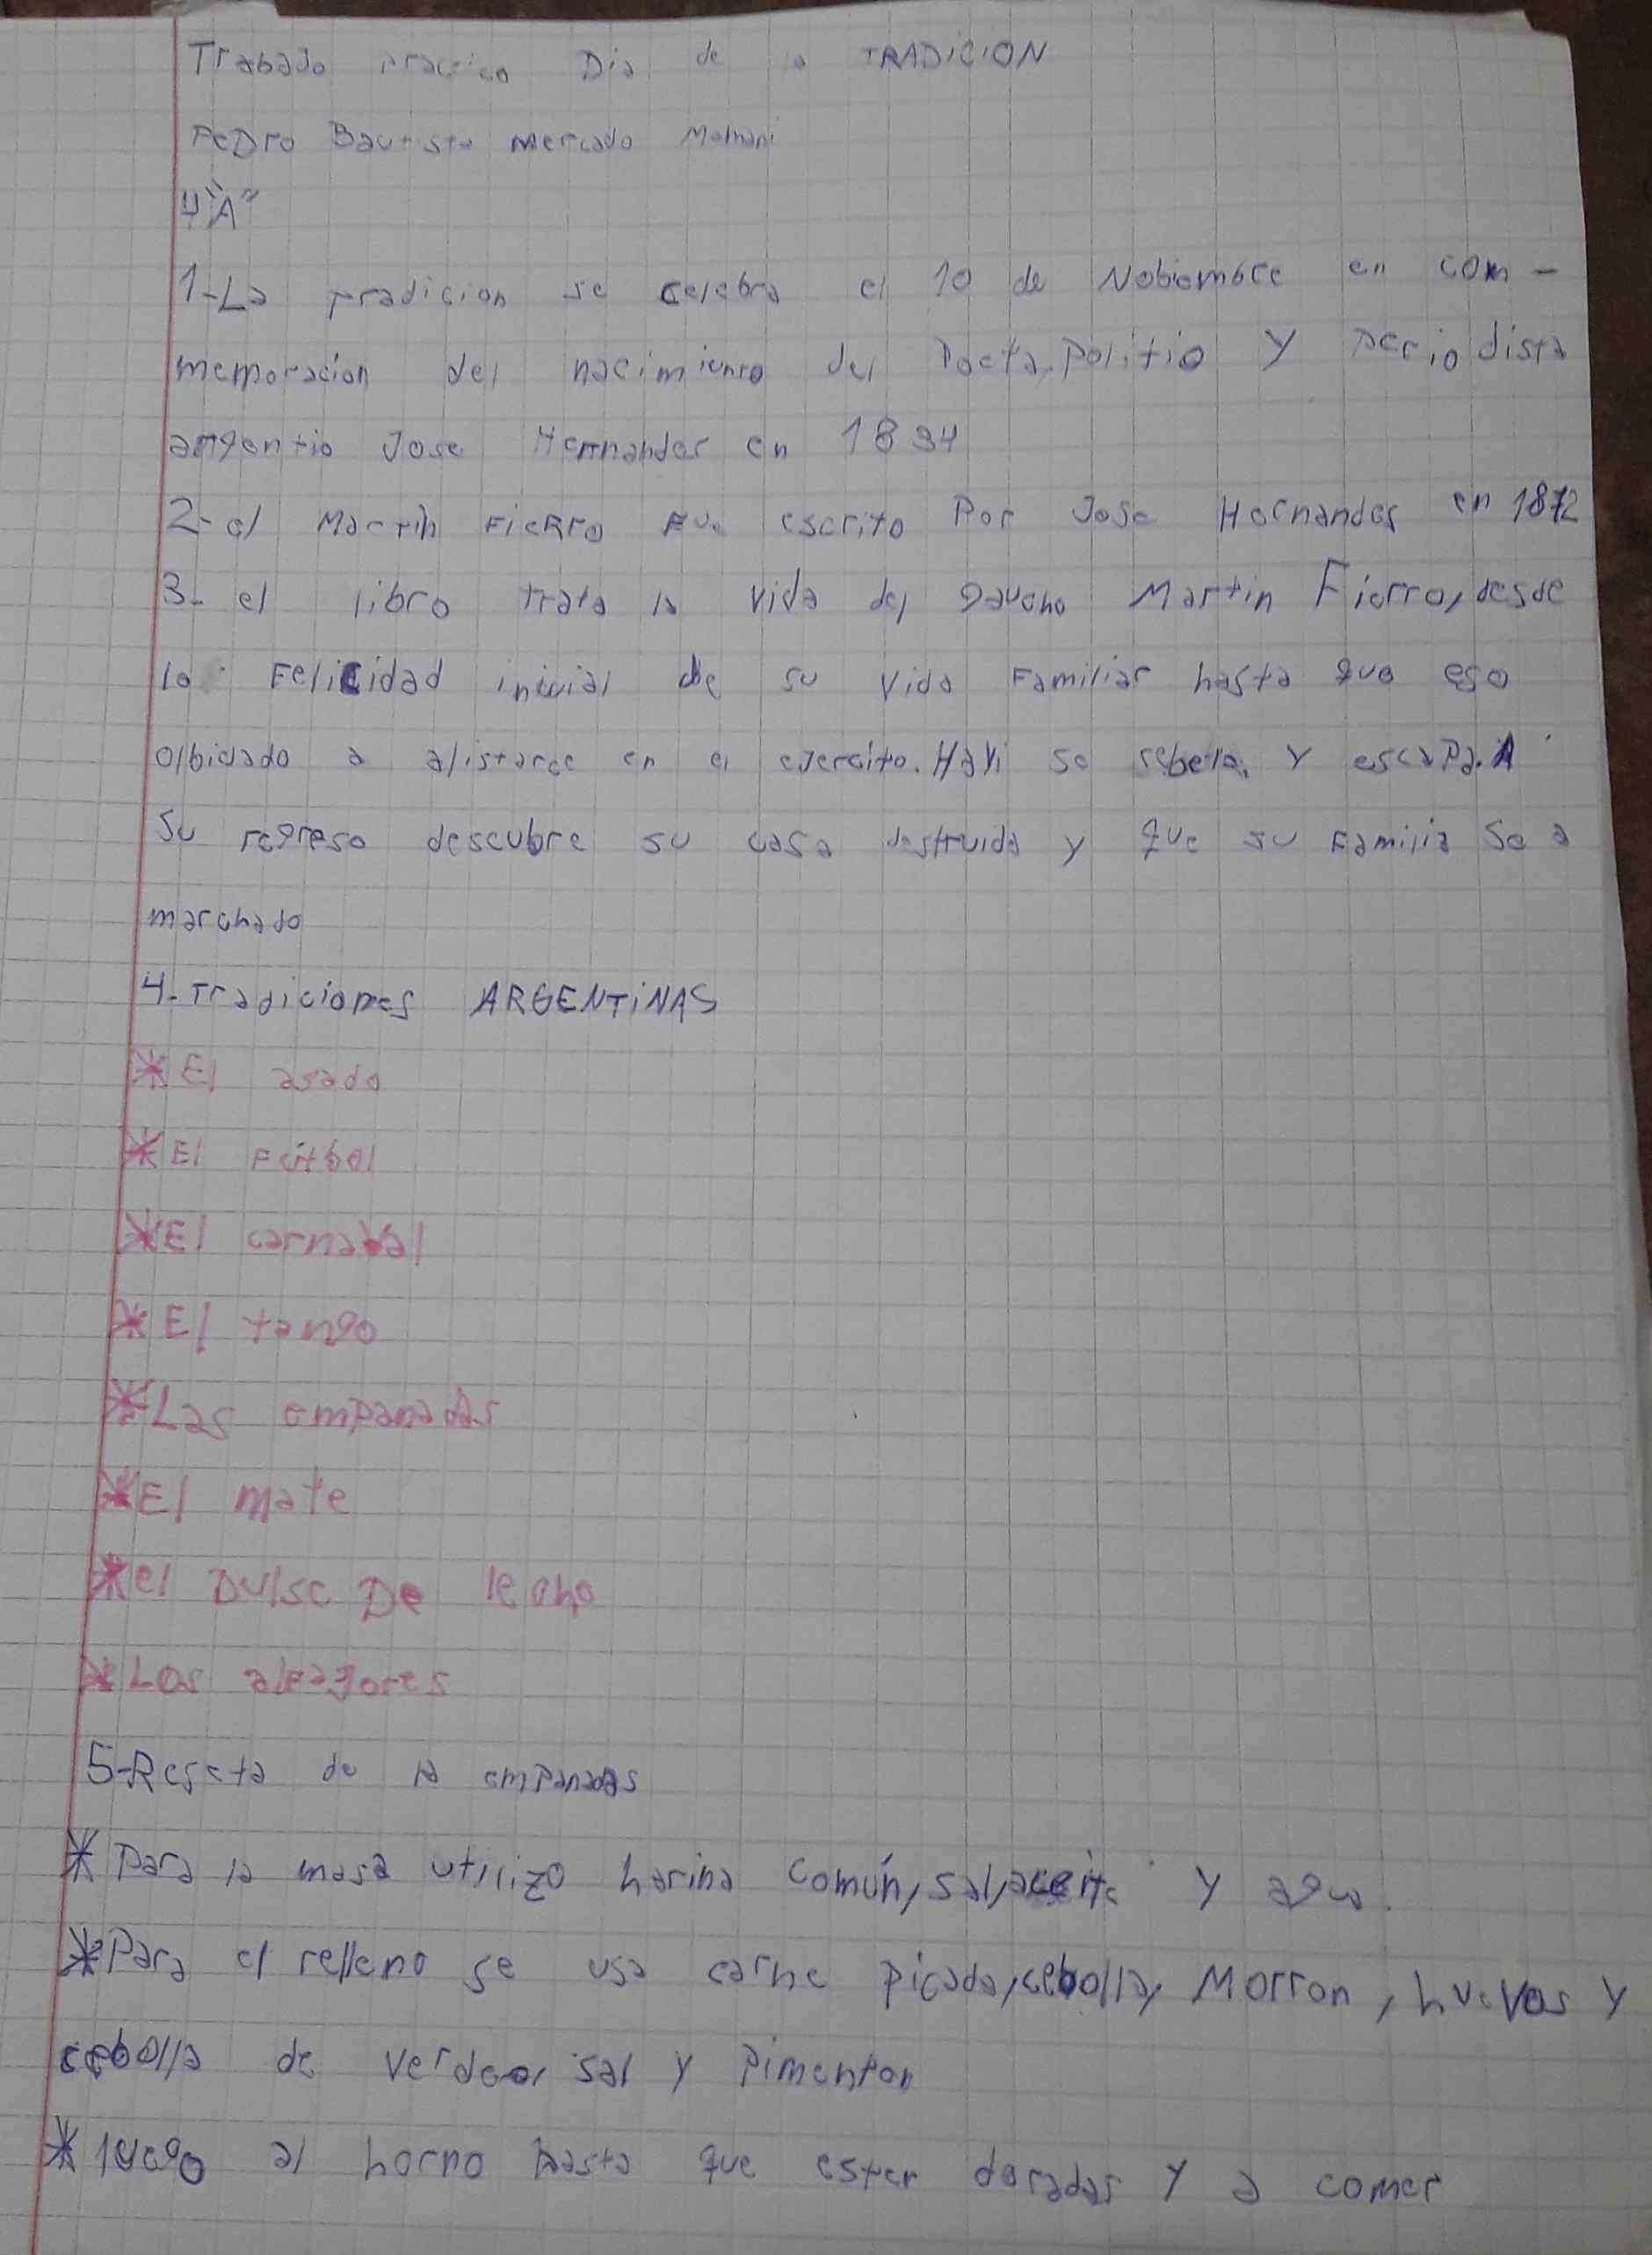 Trabado practico Dia de la TRADICION
PeDro Bautista Mercado Mamani
4"A"
1-La tradicion se celebra el 10 de Nobiembre en com-
memoracion del nacimiento del Poeta, politio y periodista
argentio Jose Hernandes en 1834
2-el Martin FieRRo Fue escrito Por Jose Hernandes en 1872
3-el libro trata la vida del gaucho Martin Fierro, desde
la Felicidad inicial de su vida Familiar hasta que eso
olbidado a alistarce en el ejercito. Hayi se rebela, y escapa. A
su regreso descubre su casa destruida y que su Familia se a
marchado
4-Tradiciones ARGENTiNAS
*El asado
*El Fútbol
*El carnabal
*El tango
*Las empanadas
*El mate
*el Dulse De leche
*Los alfagores
5-Reseta de la empanadas
*Para la masa utilizo harina común, sal, aceite y agua.
*Para el relleno se usa carne picada, cebolla, Morron, huevos y
cebolla de verdeo, sal y pimenton
*luego al horno hasta que esten doradas y a comer